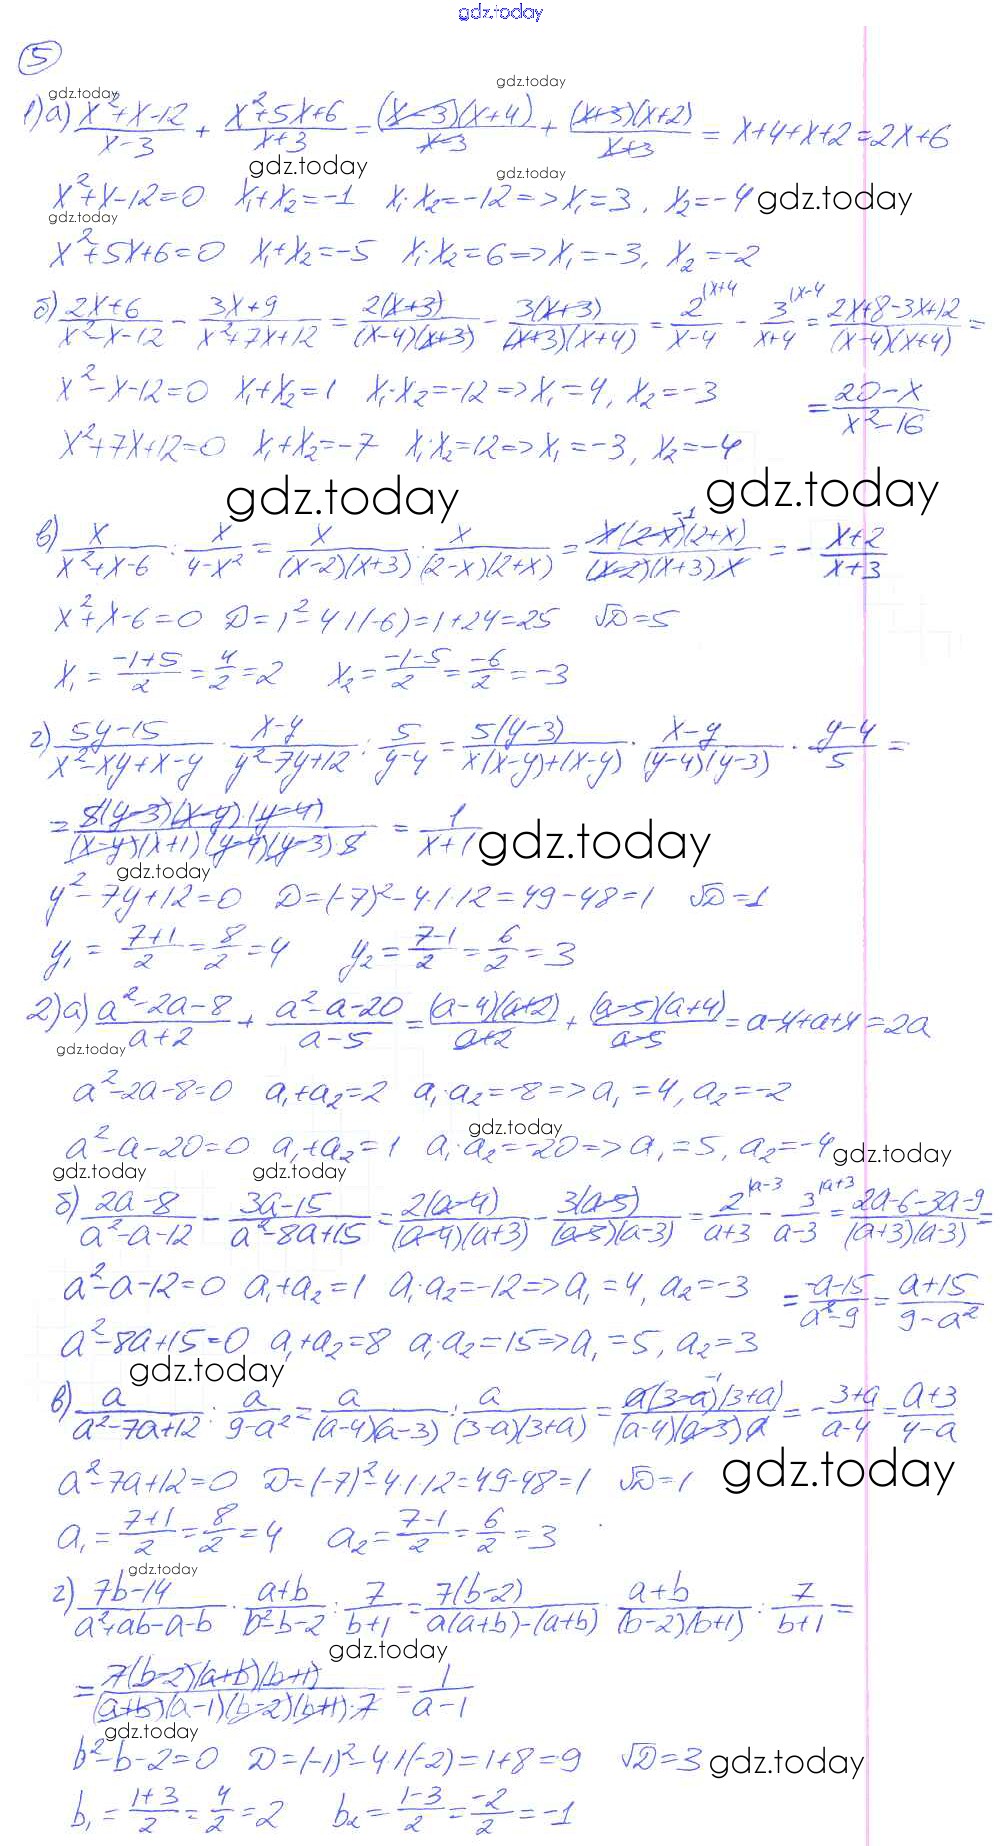 gdz.today
5
gdz.today gdz.today
1) а) (x²+x-12)/(x-3) + (x²+5x+6)/(x+3) = ((x-3)(x+4))/(x-3) + ((x+3)(x+2))/(x+3) = x+4+x+2=2x+6
gdz.today gdz.today
x²+x-12=0 x₁+x₂=-1 x₁·x₂=-12=>x₁=3, x₂=-4 gdz.today
gdz.today
x²+5x+6=0 x₁+x₂=-5 x₁·x₂=6=>x₁=-3, x₂=-2
б) (2x+6)/(x²-x-12) - (3x+9)/(x²+7x+12) = (2(x+3))/((x-4)(x+3)) - (3(x+3))/((x+3)(x+4)) = 2^(x+4/(x-4) - 3^(x-4/(x+4) = (2x+8-3x+12)/((x-4)(x+4)) =
x²-x-12=0 x₁+x₂=1 x₁·x₂=-12=>x₁=4, x₂=-3 = (20-x)/(x²-16)
x²+7x+12=0 x₁+x₂=-7 x₁·x₂=12=>x₁=-3, x₂=-4
gdz.today gdz.today
в) x/(x²+x-6) : x/(4-x²) = x/((x-2)(x+3)) : x/((2-x)(2+x)) = (x(2-x)⁻¹(2+x))/((x-2)(x+3)x) = - (x+2)/(x+3)
x²+x-6=0 D=1²-4·1·(-6)=1+24=25 √D=5
x₁ = (-1+5)/2 = 4/2 = 2 x₂ = (-1-5)/2 = -6/2 = -3
г) (5y-15)/(x²-xy+x-y) · (x-y)/(y²-7y+12) : 5/(y-4) = (5(y-3))/(x(x-y)+(x-y)) · (x-y)/((y-4)(y-3)) · (y-4)/5 =
= (5(y-3)(x-y)·(y-4))/((x-y)(x+1)(y-4)(y-3)·5) = 1/(x+1) gdz.today
gdz.today
y²-7y+12=0 D=(-7)²-4·1·12=49-48=1 √D=1
y₁ = (7+1)/2 = 8/2 = 4 y₂ = (7-1)/2 = 6/2 = 3
2) а) (a²-2a-8)/(a+2) + (a²-a-20)/(a-5) = ((a-4)(a+2))/(a+2) + ((a-5)(a+4))/(a-5) = a-4+a+4=2a
gdz.today
a²-2a-8=0 a₁+a₂=2 a₁·a₂=-8=>a₁=4, a₂=-2
gdz.today
a²-a-20=0 a₁+a₂=1 a₁·a₂=-20=>a₁=5, a₂=-4 gdz.today
gdz.today gdz.today
б) (2a-8)/(a²-a-12) - (3a-15)/(a²-8a+15) = (2(a-4))/((a-4)(a+3)) - (3(a-5))/((a-5)(a-3)) = 2^(a-3/(a+3) - 3^(a+3/(a-3) = (2a-6-3a-9)/((a+3)(a-3)) =
a²-a-12=0 a₁+a₂=1 a₁·a₂=-12=>a₁=4, a₂=-3 = (-a-15)/(a²-9) = (a+15)/(9-a²)
a²-8a+15=0 a₁+a₂=8 a₁·a₂=15=>a₁=5, a₂=3
gdz.today
в) a/(a²-7a+12) : a/(9-a²) = a/((a-4)(a-3)) : a/((3-a)(3+a)) = (a(3-a)⁻¹(3+a))/((a-4)(a-3)a) = - (3+a)/(a-4) = (a+3)/(4-a)
a²-7a+12=0 D=(-7)²-4·1·12=49-48=1 √D=1 gdz.today
a₁ = (7+1)/2 = 8/2 = 4 a₂ = (7-1)/2 = 6/2 = 3
gdz.today
г) (7b-14)/(a²+ab-a-b) · (a+b)/(b²-b-2) : 7/(b+1) = (7(b-2))/(a(a+b)-(a+b)) · (a+b)/((b-2)(b+1)) : 7/(b+1) =
gdz.today
= (7(b-2)(a+b)(b+1))/((a+b)(a-1)(b-2)(b+1)·7) = 1/(a-1)
gdz.today
b²-b-2=0 D=(-1)²-4·1(-2)=1+8=9 √D=3 gdz.today
b₁ = (1+3)/2 = 4/2 = 2 b₂ = (1-3)/2 = -2/2 = -1